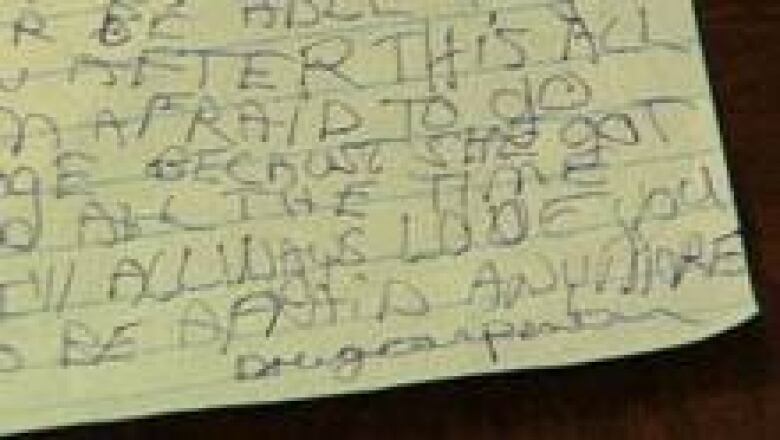 R BE ABLE
AFTER THIS ALL
M AFRAID TO GO
GE BECAUSE SHE GOT
ALL THE TIME
I'll ALLWAYS LOVE YOU
O BE AFRAID ANYMORE
Dougcarpenter